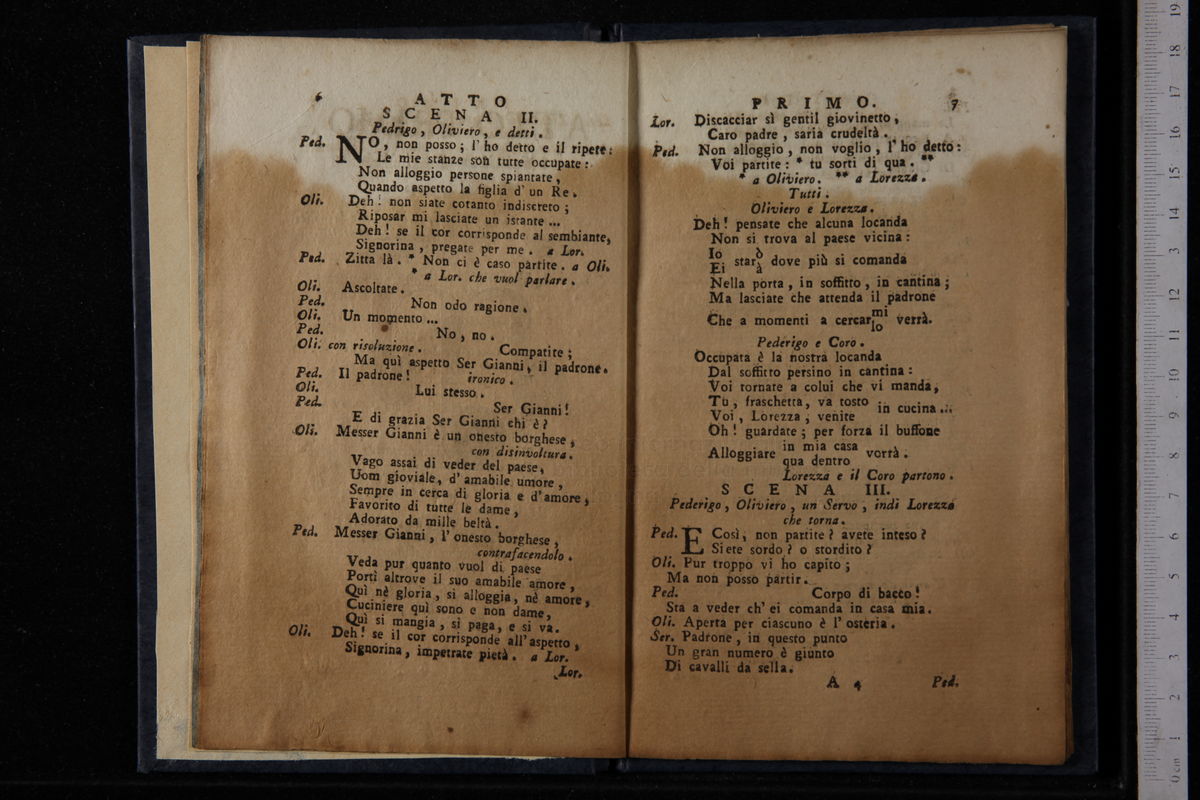 6 ATTO
SCENA II.
Pedrigo, Oliviero, e detti.
Ped. NO, non posso; l'ho detto e il ripete:
Le mie stanze son tutte occupate:
Non alloggio persone spiantate,
Quando aspetto la figlia d'un Re.
Oli. Deh! non siate cotanto indiscreto;
Riposar mi lasciate un istante ...
Deh! se il cor corrisponde al sembiante,
Signorina, pregate per me. a Lor.
Ped. Zitta là. * Non ci è caso partite. a Oli.
* a Lor. che vuol parlare.
Oli. Ascoltate.
Ped. Non odo ragione.
Oli. Un momento ...
Ped. No, no.
Oli. con risoluzione. Compatite;
Ma quì aspetto Ser Gianni, il padrone.
Ped. Il padrone! ironico.
Oli. Lui stesso.
Ped. Ser Gianni!
E di grazia Ser Gianni chi è?
Oli. Messer Gianni è un onesto borghese,
con disinvoltura.
Vago assai di veder del paese,
Uom gioviale, d'amabile umore,
Sempre in cerca di gloria e d'amore,
Favorito di tutte le dame,
Adorato da mille beltà.
Ped. Messer Gianni, l'onesto borghese,
contrafacendolo.
Veda pur quanto vuol di paese
Porti altrove il suo amabile amore,
Quì nè gloria, si alloggia, nè amore,
Cuciniere quì sono e non dame,
Quì si mangia, si paga, e si va.
Oli. Deh! se il cor corrisponde all'aspetto,
Signorina, impetrate pietà. a Lor.
Lor.
PRIMO. 7
Lor. Discacciar sì gentil giovinetto,
Caro padre, saria crudeltà.
Ped. Non alloggio, non voglio, l'ho detto:
Voi partite: * tu sorti di qua. **
* a Oliviero. ** a Lorezza.
Tutti.
Oliviero e Lorezza.
Deh! pensate che alcuna locanda
Non si trova al paese vicina:
Io starò dove più si comanda
Ei à
Nella porta, in soffitto, in cantina;
Ma lasciate che attenda il padrone
Che a momenti a cercarmi verrà.
lo
Pederigo e Coro.
Occupata è la nostra locanda
Dal soffitto persino in cantina:
Voi tornate a colui che vi manda,
Tu, fraschetta, va tosto in cucina...
Voi, Lorezza, venite
Oh! guardate; per forza il buffone
Alloggiare in mia casa vorrà.
qua dentro
Lorezza e il Coro partono.
SCENA III.
Pederigo, Oliviero, un Servo, indi Lorezza
che torna.
Ped. E Così, non partite? avete inteso?
Siete sordo? o stordito?
Oli. Pur troppo vi ho capito;
Ma non posso partir.
Ped. Corpo di bacco!
Sta a veder ch'ei comanda in casa mia.
Oli. Aperta per ciascuno è l'osteria.
Ser. Padrone, in questo punto
Un gran numero è giunto
Di cavalli da sella.
A 4 Ped.